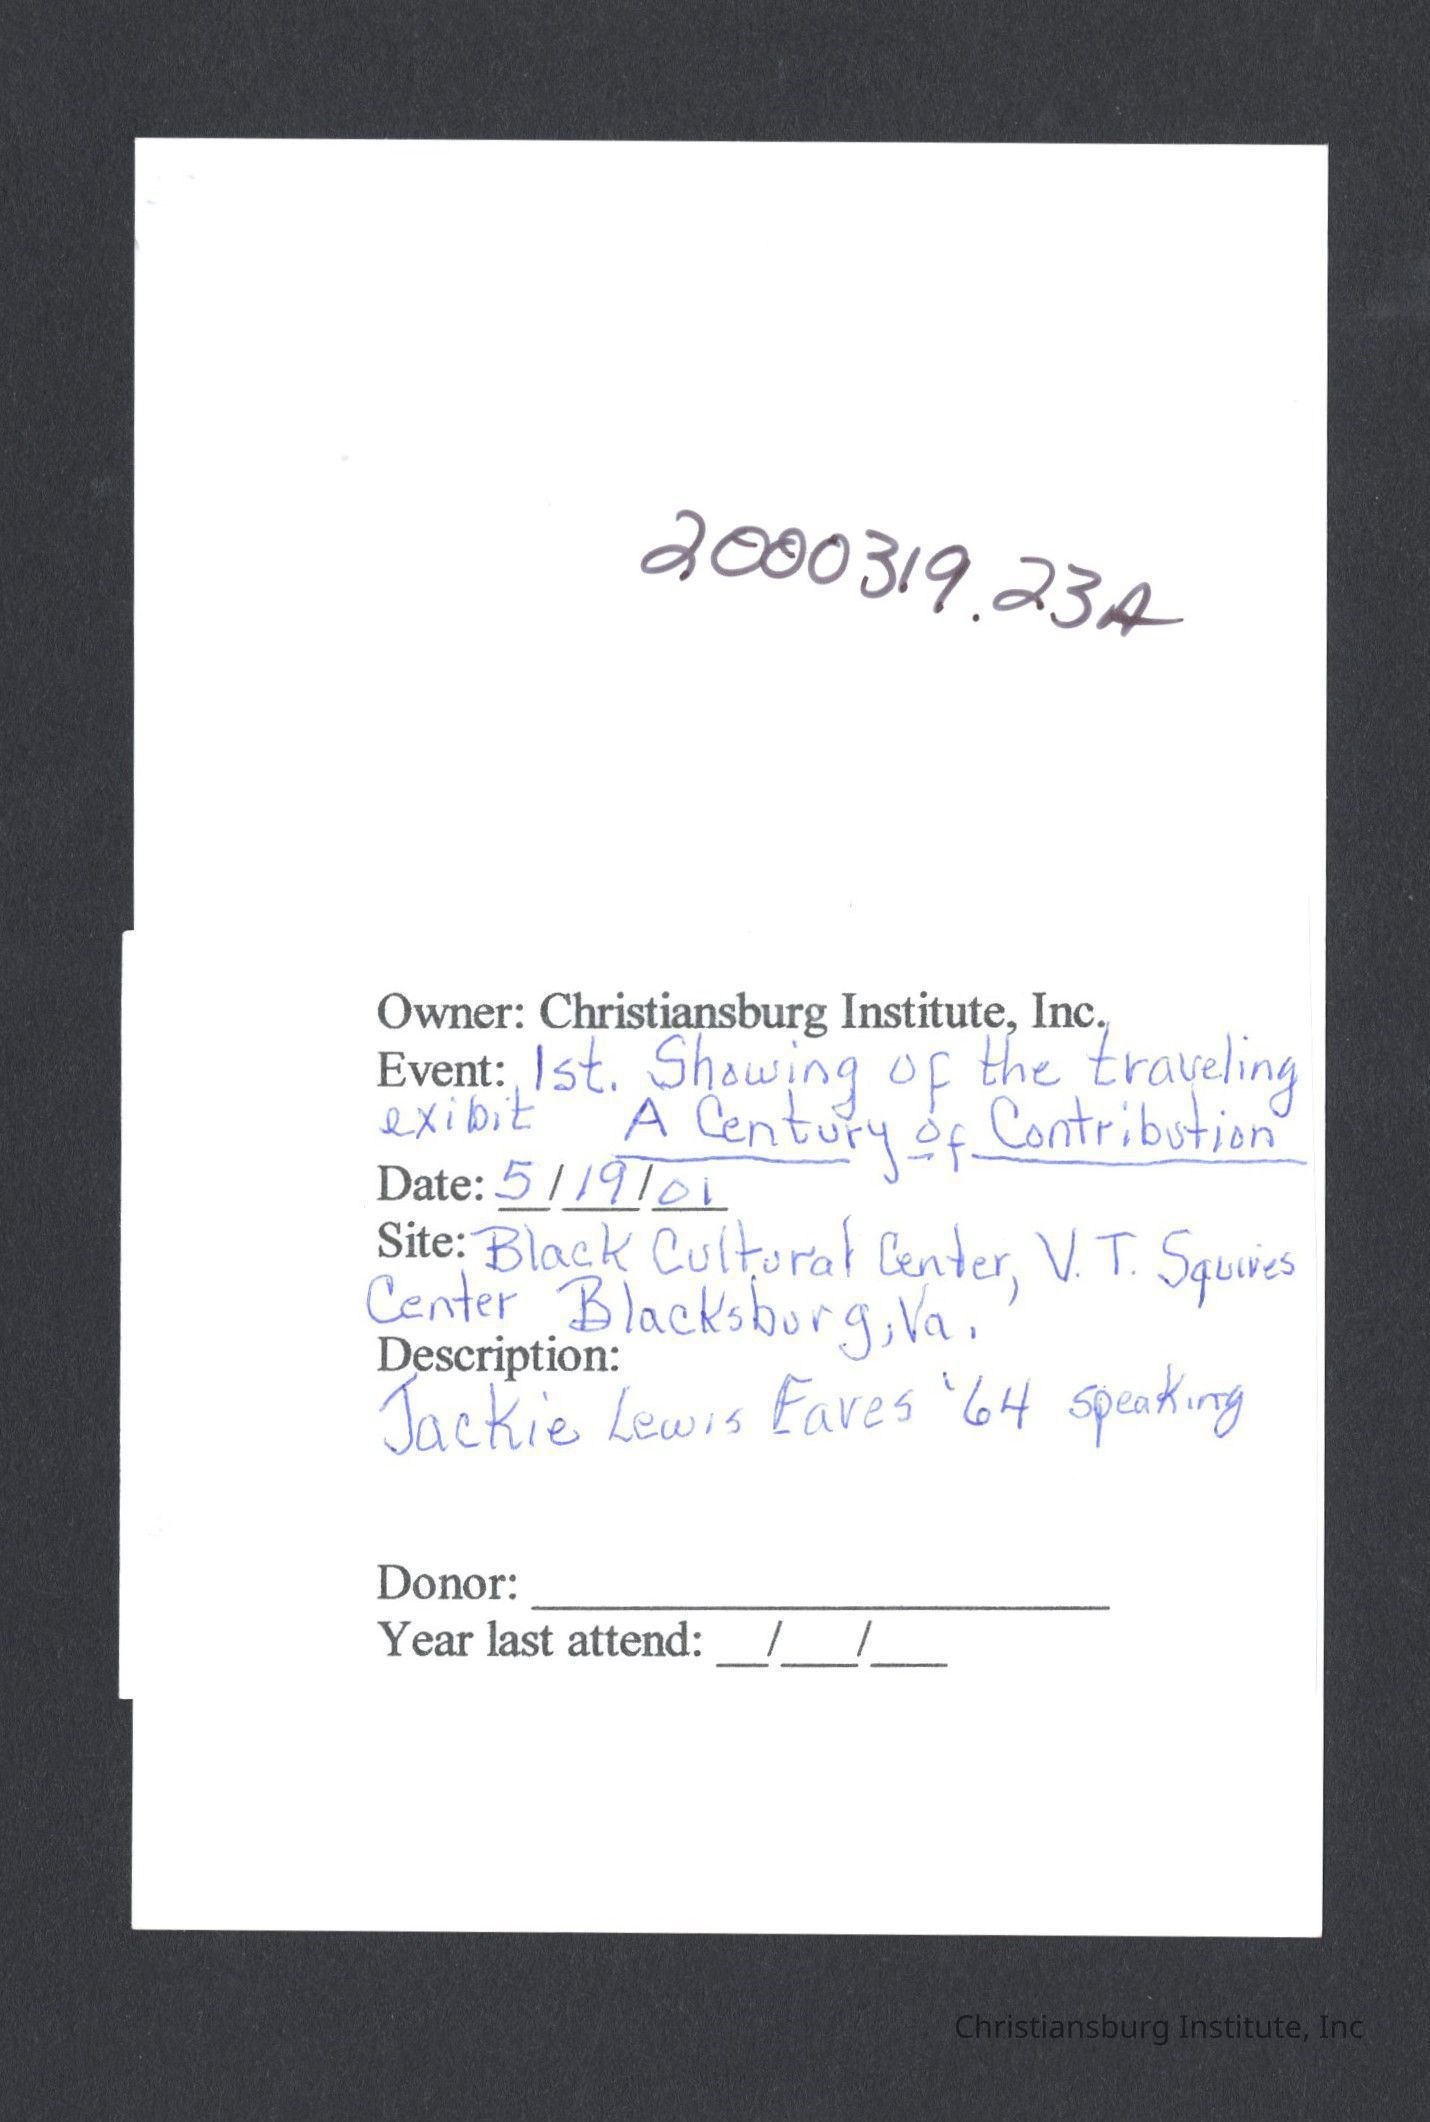 2000319.23A
Owner: Christiansburg Institute, Inc.
Event: 1st. Showing of the traveling
exibit A Century of Contribution
Date: 5/19/01
Site: Black Cultural Center, V.T. Squires
Center Blacksburg, Va.
Description:
Jackie Lewis Eaves '64 speaking
Donor: ____________________
Year last attend: __/___/___
Christiansburg Institute, Inc